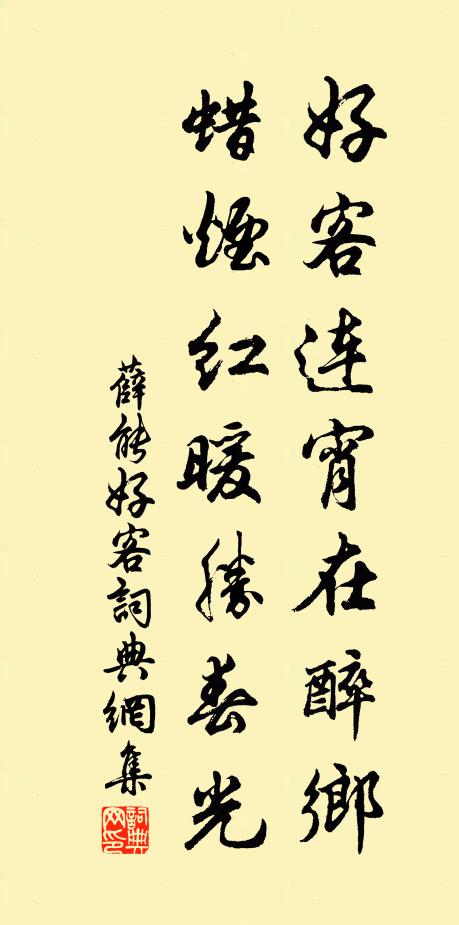 好客连宵在醉乡
蜡烟红暖胜春光
薛能好客詞典網集
詞典网印